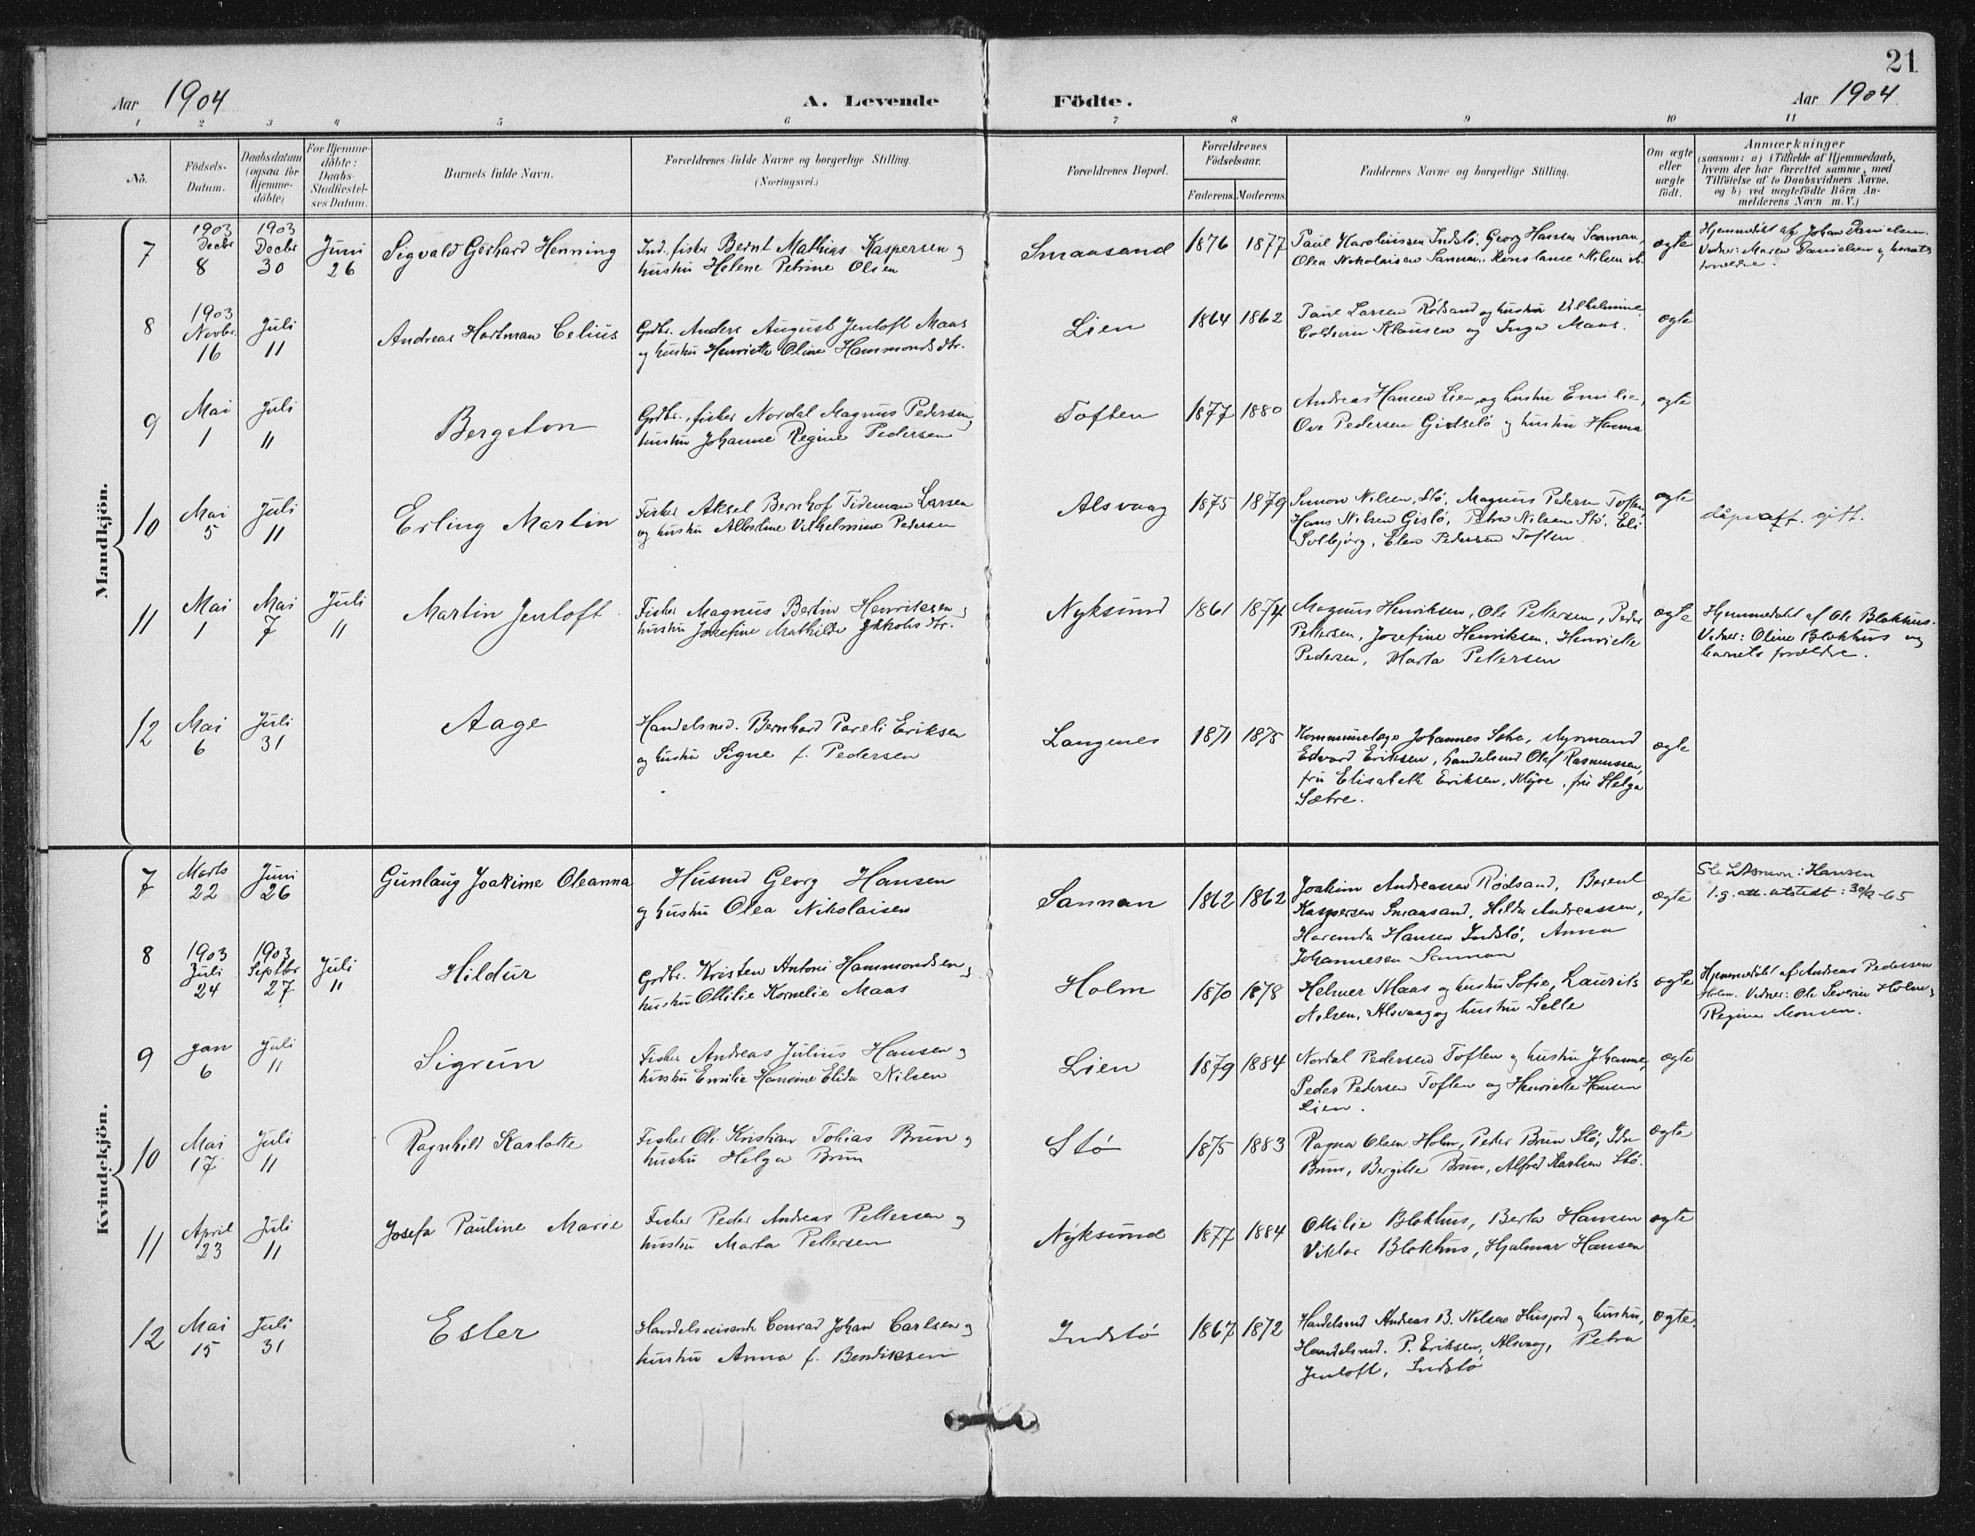 21
Aar 1904
A. Levende
Födte.
Aar 1904
1 2 3 4 5 6 7 8 9 10 11
No.
Födsels-
Datum.
Daabsdatum
(ogsaa for
Hjemme-
döbte)
For Hjemme-
döbte:
Daabs-
Stadfæstel-
ses Datum.
Barnets fulde Navn.
Forældrenes fulde Navne og borgerlige Stilling.
(Næringsvei.)
Forældrenes Bopæl.
Forældrenes
Födselsaar.
Faderens
Moderens
Faddernes Navne og borgerlige Stilling.
Om ægte
eller
uægte
födt.
Anmærkninger
(saasom: a) i Tilfælde af Hjemmedaab,
hvem der har forrettet samme, med
Tilföielse af to Daabsvidners Navne,
og b) ved uægtefödte Börn An-
melderens Navn m. V.)
Mandkjön.
7
1903
Decbr
8
1903
Decbr
30
Juni
26
Sigvald Gerhard Henning
Ind. fisker Bernt Mathias Kaspersen og
hustru Helene Petrine Olsen
Smaasand
1876
1877
Paul Karolinssen Indstø, Georg Hansen Sannan,
Olea Nikolaisen Sannan, Konstanse Nilsen
ægte
Hjemmedøbt af Johan Danielsen.
Vidner: Maren Danielsen og barnets
forældre.
8
1903
Novbr.
16
Juli
11
Andreas Hartman Celius
Grdbr. Anders August Jentoft Maas
og hustru Henriette Oline Hammondsdtr.
Lien
1864
1862
Paul Larsen Rødsand og hustru Vilhelmine,
Klausen og Inga Maas.
ægte
9
Mai
1
Juli
11
Bergeton
Grdbr., fisker Nordal Magnus Pedersen,
hustru Johanne Regine Pedersen
Toften
1877
1880
Andreas Hansen Lien og hustru Emilie,
Ove Pedersen Gisløe og hustru Hanna
ægte
10
Mai
5
Juli
11
Erling Martin
Fisker Aksel Bernhof Tideman Larsen
og hustru Albertine Vilhelmine Pedersen
Alsvaag
1875
1879
Simon Nilsen, Stø, Magnus Pedersen Toften,
Hans Nilsen Gislø, Petra Nilsen Stø, Eli
Solbjørg, Elen Pedersen Toften.
ægte
dåpsatt. gift.
11
Mai
1
Mai
7
Juli
11
Martin Jentoft
Fisker Magnus Bertin Henriksen og
hustru Josefine Mathilde Jakobsdtr.
Nyksund
1861
1874
Magnus Henriksen, Ole Pettersen, Peder
Pettersen, Josefine Henriksen, Henriette
Pedersen, Marta Pettersen
ægte
Hjemmedøbt af Ole Blokhus.
Vidner: Oline Blokhus og
barnets forældre.
12
Mai
6
Juli
31
Aage
Handelsmd. Bernhard Pareli Eriksen
og hustru Signe f. Pedersen
Langenes
1871
1875
Kommunelæge Johannes
Edvard Eriksen, handelsmd Olaf Rasmussen,
fru Elisabeth Eriksen, Myre, fru Helga
Sætre.
ægte
Kvindekjön.
7
Marts
22
Juni
26
Gunlaug Joakime Oleanna
Husmd Georg Hansen
og hustru Olea Nikolaisen
Sannan
1862
1862
Joakim Andreassen Rødsand, Berent
Kaspersen Smaasand, Hilda Andreassen,
Harenda Hansen Indstø, Anna
Johannesen Sannan
ægte
Hansen
l.g. att. utstedt: 30/9-65
8
1903
Juli
24
1903
Septbr
27
Juli
11
Hildur
Grdbr. Kristen Antoni Hammondsen,
hustru Ottilie Kornelie Maas
Holm
1870
1878
Helmer Maas og hustru Sofie, Laurits
Nilsen, Alsvaag og hustru Selle
ægte
Hjemmedøbt af Andreas Pedersen
Holm. Vidner: Ole Severin Holm og
Regine Monsen.
9
Jan
6
Juli
11
Sigrun
Fisker Andreas Julius Hansen og
hustru Emilie Hansine Elida Nilsen
Lien
1879
1884
Nordal Pedersen Toften og hustru Johanne,
Peder Pedersen Toften og Henriette Hansen
Lien.
ægte
10
Mai
17
Juli
11
Ragnhild Karlotte
Fisker Ole Kristian Tobias Brun og
hustru Helga Brun
Stø
1875
1883
Ragna Olsen Holm, Peter Brun Stø, Ida
Brun, Bergitte Brun, Alfred Karlsen Stø.
ægte
11
April
23
Juli
11
Josefa Pauline Marie
Fisker Peder Andreas Pettersen og
hustru Marta Pettersen
Nyksund
1877
1884
Ottilie Blokhus, Berta Hansen
Viktor Blokhus, Hjalmar Hansen
ægte
12
Mai
15
Juli
31
Ester
Handelsreisende Conrad Johan Carlsen og
hustru Anna f. Bendiksen
Indstø
1867
1872
Handelsmd Andreas B. Nilsen Husjord og hustru,
Handelsmd. P. Eriksen, Alsvaag, Petra
Jentoft, Indstø
ægte.